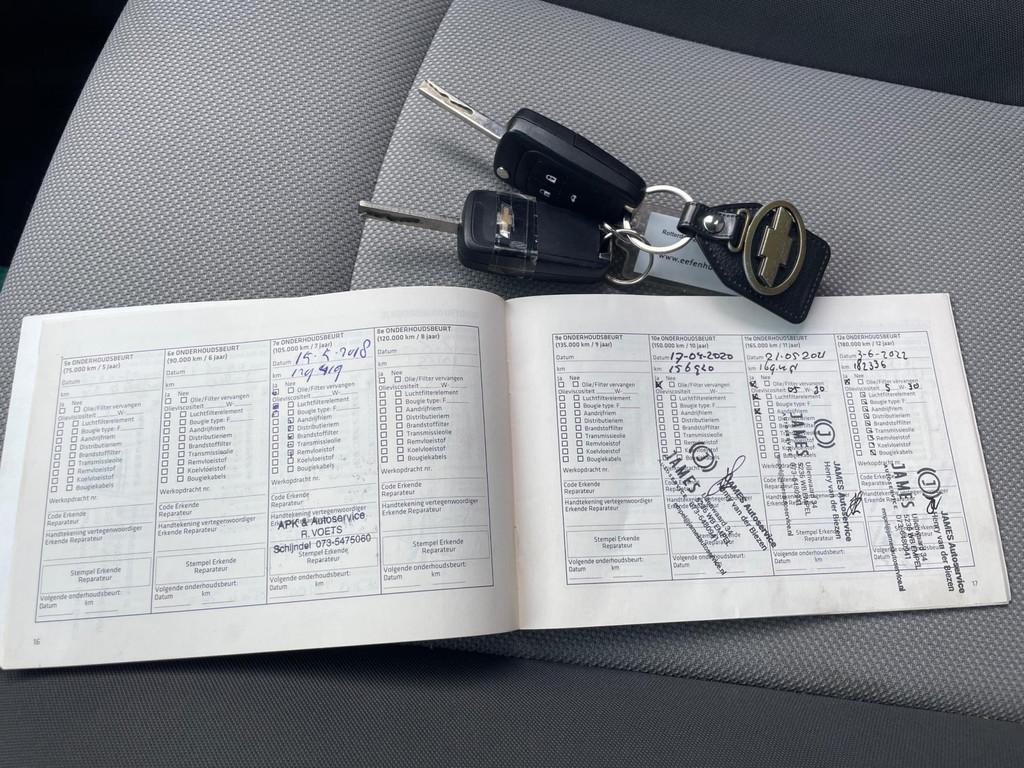 Rotterd
www.eefenho
5e ONDERHOUDSBEURT
(75.000 km / 5 jaar)
Datum
km
Ja Nee
Olie/Filter vervangen
Olieviscositeit W-
Luchtfilterelement
Bougie type: F
Aandrijfriem
Distributieriem
Brandstoffilter
Transmissieolie
Remvloeistof
Koelvloeistof
Bougiekabels
Werkopdracht nr.
Code Erkende
Reparateur
Handtekening vertegenwoordiger
Erkende Reparateur
Stempel Erkende
Reparateur
Volgende onderhoudsbeurt:
Datum km
6e ONDERHOUDSBEURT
(90.000 km / 6 jaar)
Datum
km
Ja Nee
Olie/Filter vervangen
Olieviscositeit W-
Luchtfilterelement
Bougie type: F
Aandrijfriem
Distributieriem
Brandstoffilter
Transmissieolie
Remvloeistof
Koelvloeistof
Bougiekabels
Werkopdracht nr.
Code Erkende
Reparateur
Handtekening vertegenwoordiger
Erkende Reparateur
Stempel Erkende
Reparateur
Volgende onderhoudsbeurt:
Datum km
7e ONDERHOUDSBEURT
(105.000 km / 7 jaar)
Datum 15-5-2018
km
Ja Nee
Olie/Filter vervangen
Olieviscositeit W-
Luchtfilterelement
Bougie type: F
Aandrijfriem
Distributieriem
Brandstoffilter
Transmissieolie
Remvloeistof
Koelvloeistof
Bougiekabels
Werkopdracht nr.
Code Erkende
Reparateur
Handtekening vertegenwoordiger
Erkende Reparateur
APK & Autoservice
R. VOETS
Schijndel 073-5475060
Stempel Erkende
Reparateur
Volgende onderhoudsbeurt:
Datum km
8e ONDERHOUDSBEURT
(120.000 km / 8 jaar)
Datum
km
Ja Nee
Olie/Filter vervangen
Olieviscositeit W-
Luchtfilterelement
Bougie type: F
Aandrijfriem
Distributieriem
Brandstoffilter
Transmissieolie
Remvloeistof
Koelvloeistof
Bougiekabels
Werkopdracht nr.
Code Erkende
Reparateur
Handtekening vertegenwoordiger
Erkende Reparateur
Stempel Erkende
Reparateur
Volgende onderhoudsbeurt:
Datum km
16
9e ONDERHOUDSBEURT
(135.000 km / 9 jaar)
Datum
km
Ja Nee
Olie/Filter vervangen
Olieviscositeit W-
Luchtfilterelement
Bougie type: F
Aandrijfriem
Distributieriem
Brandstoffilter
Transmissieolie
Remvloeistof
Koelvloeistof
Bougiekabels
Werkopdracht nr.
Code Erkende
Reparateur
Handtekening vertegenwoordiger
Erkende Reparateur
Stempel Erkende
Reparateur
Volgende onderhoudsbeurt:
Datum km
10e ONDERHOUDSBEURT
(150.000 km / 10 jaar)
Datum 17-04-2020
km 156920
Ja Nee
Olie/Filter vervangen
Olieviscositeit W-
Luchtfilterelement
Bougie type: F
Aandrijfriem
Distributieriem
Brandstoffilter
Transmissieolie
Remvloeistof
JAMES
JAMES Autoservice
Henry van der Biezen
Stempel Erkende
Reparateur
Datum
11e ONDERHOUDSBEURT
(165.000 km / 11 jaar)
Datum 21-05-2021
km
Ja Nee
Olie/Filter vervangen
JAMES
JAMES Autoservice
Henry van der Biezen
Stempel Erkende
Reparateur
Volgende onderhoudsbeurt:
Datum km
12e ONDERHOUDSBEURT
(180.000 km / 12 jaar)
Datum 3-6-2022
km 182336
Ja Nee
Olie/Filter vervangen
Olieviscositeit 5 W- 30
Luchtfilterelement
Bougie type: F
Aandrijfriem
Distributieriem
Brandstoffilter
Transmissieolie
Remvloeistof
Koelvloeistof
Bougiekabels
JAMES
JAMES Autoservice
Henry van der Biezen
17